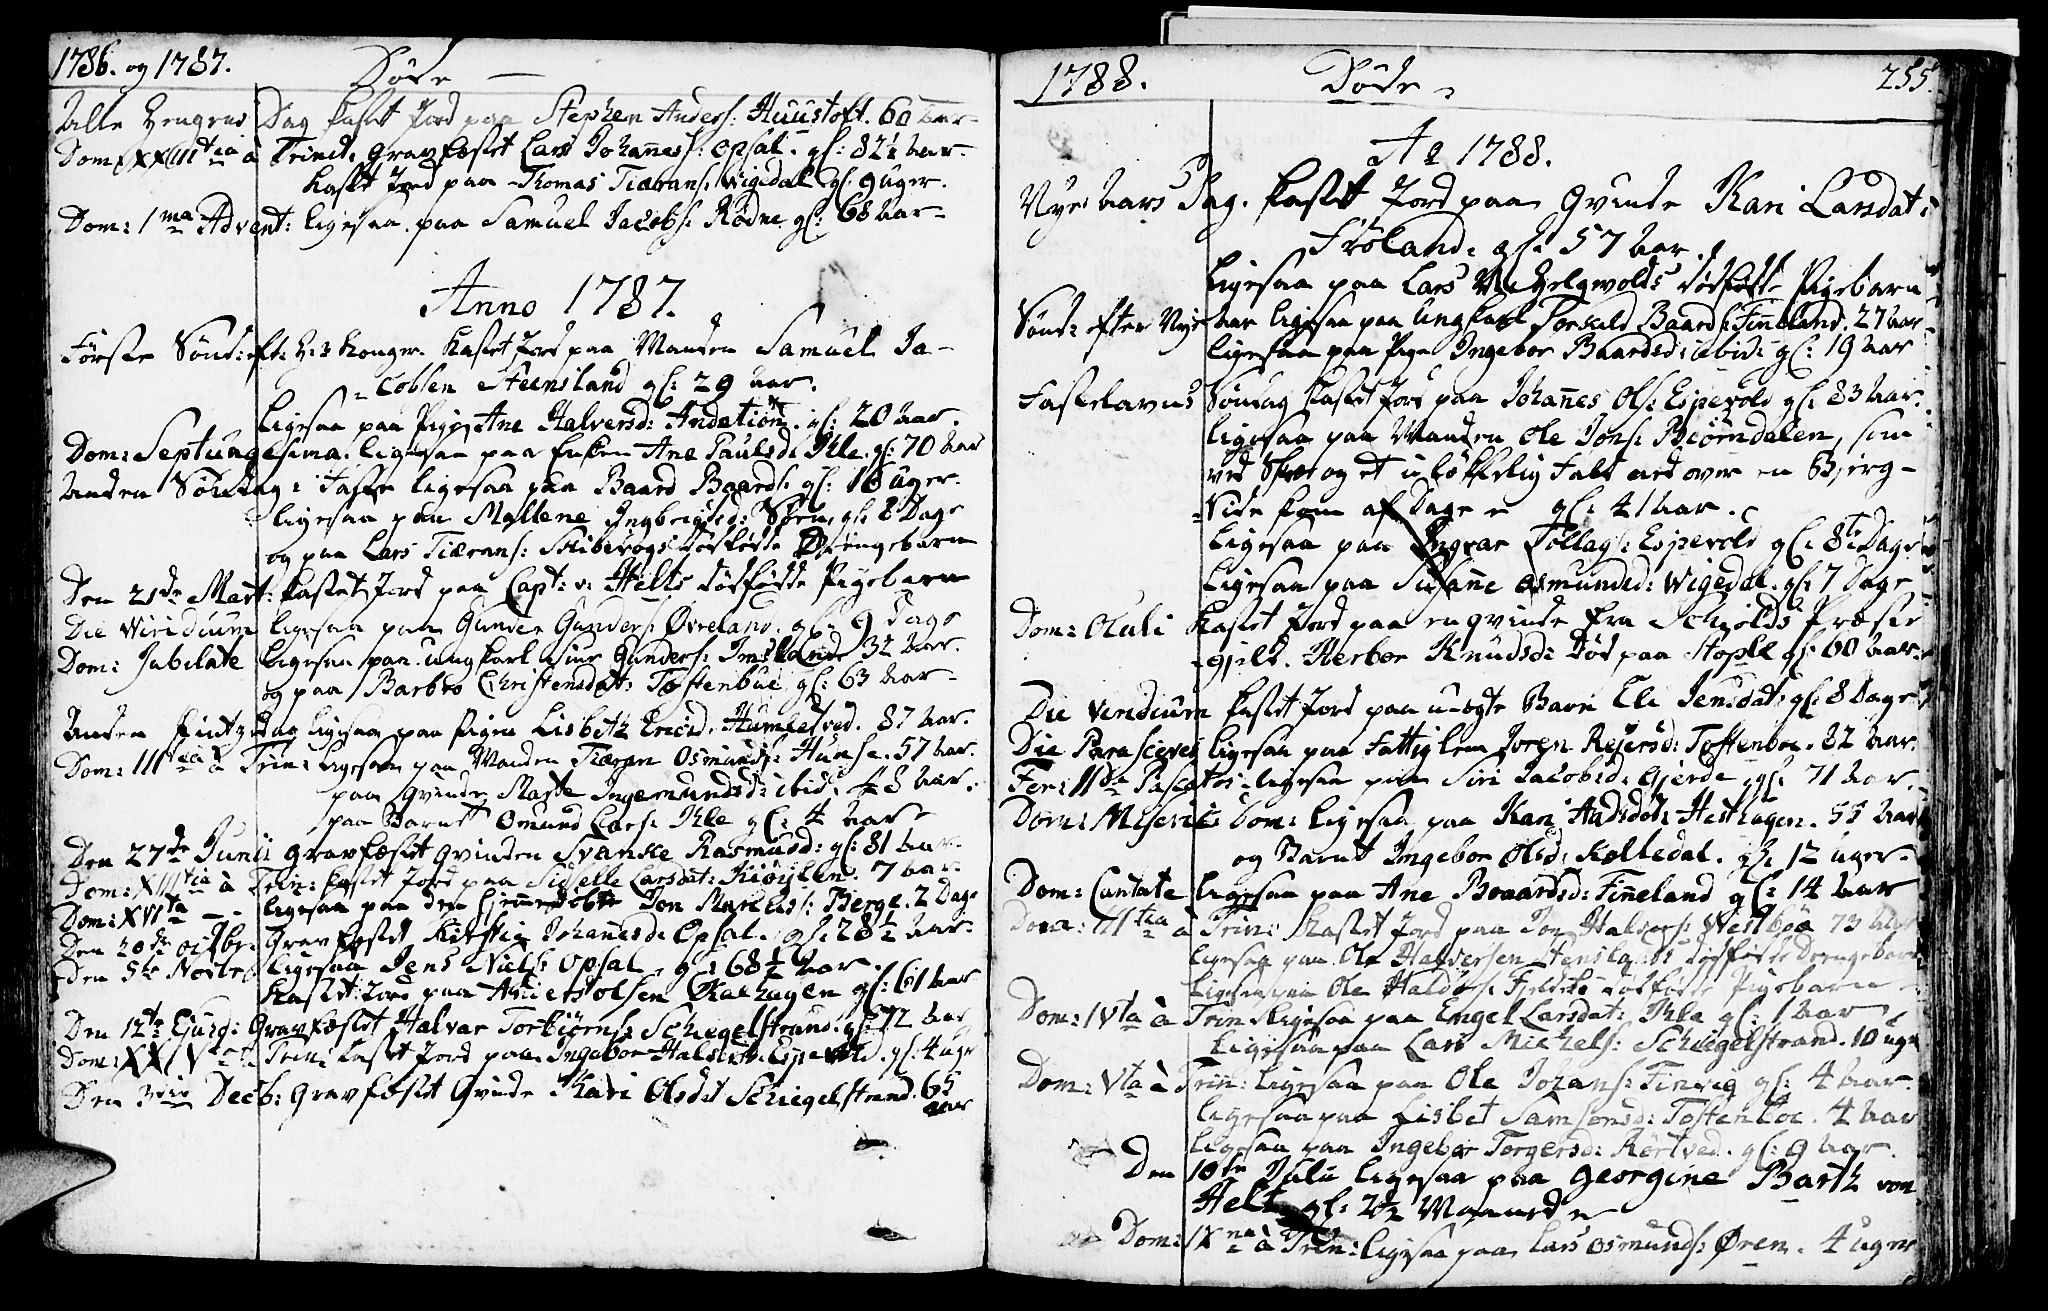 1786. og 1787. Døde
Alle Helgens Dag kastet Jord paa Stephen Anders: Huustoft. 60 Aar
Dom: XXIII tia à Trinit: Gravfæstet Lars Johannes: Opsal. gl: 82½ Aar.
kastet Jord paa Thomas Tiærans: Wigedal gl: 9 uger.
Dom: 1 ma Advent: ligesaa paa Samuel Jacobs: Rødne. gl: 68 Aar
Anno 1787.
Første Sønd: eft: H: 3 Konger. kastet Jord paa Manden Samuel Ja-
cobsen Steensland gl: 29 Aar.
ligesaa paa Pige Ane Halversd: gl: 20 Aar.
Dom: Septuagesima. ligesaa paa Enken Ane Paulsd: Ihle. gl: 70 Aar
Anden Søndag i Faste ligesaa paa Baard Baards: gl: 16 uger.
ligesaa paa Mallene gl: 8 Dage
og paa Lars Tiærans: dødfødte Drengebarn
Den 21de Mart: kastet Jord paa Capt: v: Helts dødfødte Pigebarn
Die Viridium ligesaa paa Gunder Gunders: Øvreland. gl: 9 Dage
Dom: Jubilate ligesaa paa ungkarl Gunders: Imsland 32 Aar.
og paa Barbro Christensdat: Toftenbue gl: 63 Aar
Anden Pintzedag ligesaa paa Pigen Lisbeth Ericsd: Humlestved. 87 Aar.
Dom: III tia à Trin: ligesaa paa Manden Tiæran Osmunds: 57 Aar.
paa Qvinde Marte Ingemundsd: ibid: 48 Aar.
paa Barnet Omund Lars: Ihle gl: 4 Aar
Den 27de Junii Gravfæstet Qvinden Svanke Rasmusd: gl: 81 Aar.
Dom: XIII tia à Trin: kastet Jord paa Sidselle Larsdat: 7 Aar.
Dom: XVI ta - - ligesaa paa den hiemmedøbte Jon Berge. 2 Dage
Den 20de Octbr: Gravfæstet Kirstie Johanesd: Opsal. gl: 28½ Aar.
Den 5te Novbr: ligesaa Jens Niels: Opsal. gl: 68½ Aar.
kastet Jord paa Olsen gl: 61 Aar
Den 12te Ejusd: Gravfæstet Halvar Torbiørns: Schiegelstrand. gl: 72 Aar
Dom: Trin: kastet Jord paa Ingebor Halversd: Espevold. gl: 4 uger
Den 3die Decb: Gravfæstet Qvinde Kari Olsdat Schiegelstrand. 65
Aar
1788. Døde. 255.
Ao 1788.
Nye Aars Dag. kastet Jord paa Qvinde Kari Larsdat:
Frøland: gl: 57 Aar.
ligesaa paa Lars dødfødte Pigebarn
Sønd: efter Nye Aar ligesaa paa ungkarl Torkild Baards: Finneland. 27 Aar
ligesaa paa Pige Ingebor Baardsd: ibid: gl: 19 Aar
Fastelavns Søndag kastet Jord paa Johannes Ols: Espevold gl: 83 Aar.
ligesaa paa Manden Ole Jons: Biørndalen, som
ved og et ulykkelig Fald ned over en Bjerg-
Side kom af Dage gl: 41 Aar.
ligesaa paa Ingvar Tollags: Espevold gl: 8t: Dage
ligesaa paa Susanne Osmundsd: Wigedal. gl: 7 Dage
Dom: Oculi kastet Jord paa en Qvinde fra Schiølds Præste
gjeld. Herbor Knudsd: død paa Stople gl: 60 Aar.
Die Viridium kastet Jord paa uægte Barn Eli Jensdat: gl: 8 Dage
Die Parasceves ligesaa paa Fattiglem Joren Rejersd: Toftenboe. 82 Aar.
Fer: II da Paschatos: ligesaa paa Siri Jacobsd: Gjerde, gl: 71 Aar.
Dom: Misericord: ligesaa paa Kari Hesthagen. 55 Aar
og Barnet Ingebor Olsd: Kolledal. gl: 12 uger.
Dom: Cantate ligesaa paa Ane Baardsd: Finneland gl: 14 Aar
Dom: III tia à Trin: kastet Jord paa Jon Halvers: Westbøe 73 Aar
ligesaa paa Ole Halversen dødfødte Drengebarn
ligesaa paa Ole Haldors: dødfødte Pigebarn
Dom: IV ta à Trin ligesaa paa Engel Larsdat: Ihle gl: 1 Aar
ligesaa paa Lars Michels: Schiegelstrand. 10 uger
Dom: V ta à Trin: ligesaa paa Ole Johans: Finvig gl: 4 Aar.
ligesaa paa Lisbet Samsonsd: Toftenboe. 4 Aar
ligesaa paa Ingebor Torgersd: Rørtved. gl: 9 Aar.
Den 10de Julii ligesaa paa Georgine Barth von
Helt gl: 2½ Maaneder
Dom: IX na à Trin: ligesaa paa Lars Osmunds: Øren. 4 uger